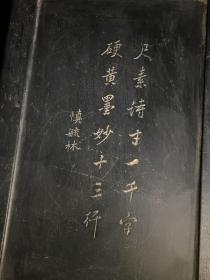 尺素诗古一千字
硬黄墨妙十三行
慎毓林